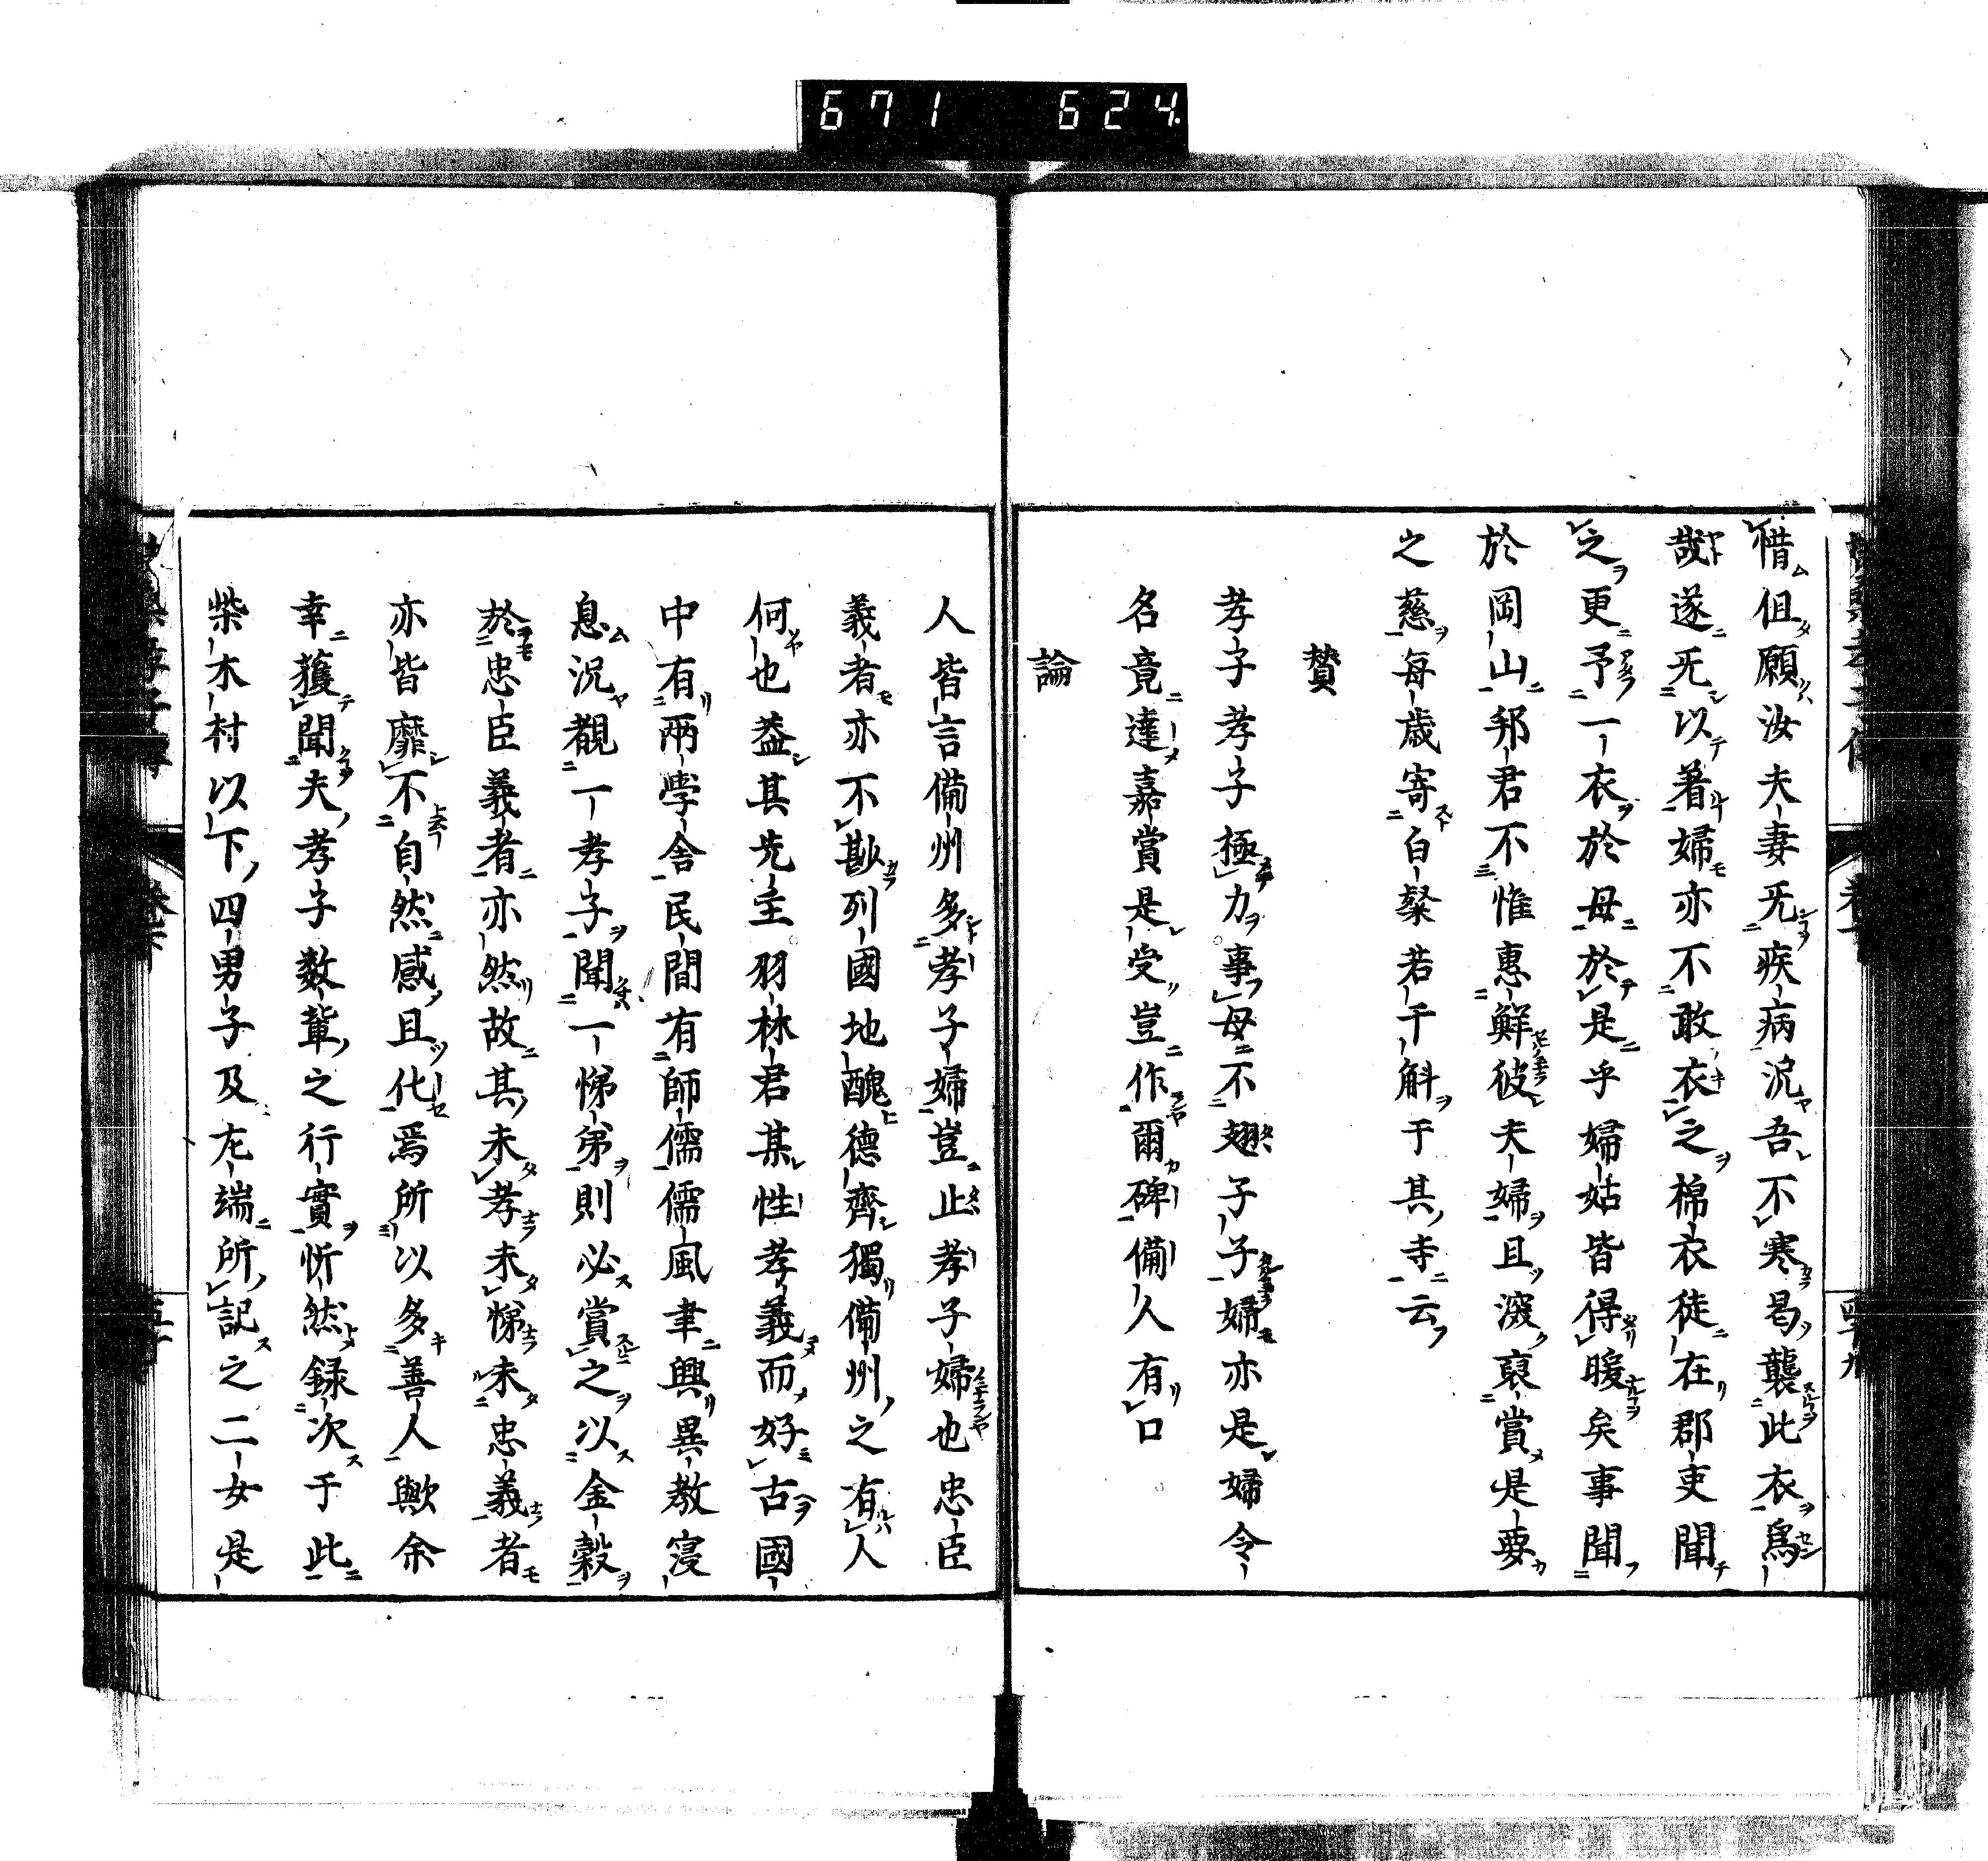 671 624
惜但願汝夫妻旡疾病況吾不寒曷襲此衣爲
哉遂旡以着婦亦不敢衣之棉衣徒在郡吏聞
之更予一衣於母於是乎婦姑皆得暖矣事聞
於岡山邦君不惟惠鮮彼夫婦且深裒賞是要
之慈每歳寄白粲若干斛于其寺云
賛
孝子孝子極力事母不翅子子婦亦是婦令
名竟達嘉賞是受豈作爾碑備人有口
論
人皆言備州多孝子婦豈止孝子婦也忠臣
義者亦不尠列國地醜德齊獨備州之有人
何也葢其先主羽林君某性孝義而好古國
中有兩學舎民間有師儒儒風聿興異教寖
息況覩一孝子聞一悌弟則必賞之以金穀
於忠臣義者亦然故其未孝未悌未忠義者
亦皆靡不自然感且化焉所以多善人歟余
幸獲聞夫孝子数輩之行實忻然録次于此
柴木村以下四男子及左端所記之二女是